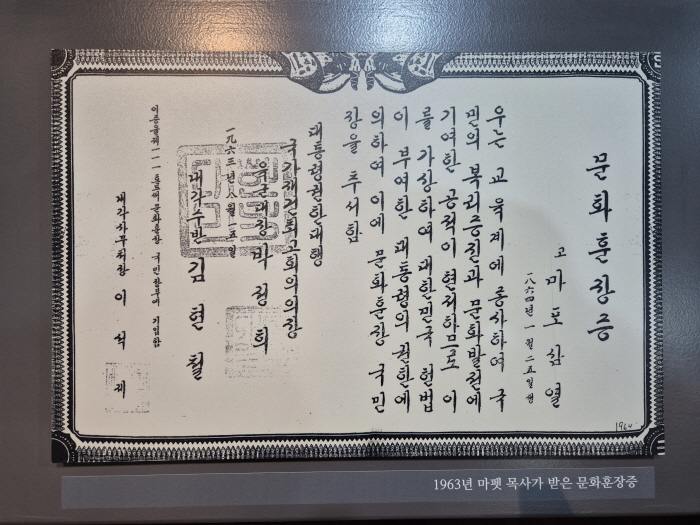 문화훈장증
고 마포삼열
一八六四년 一월 二五일 생
우는 교육계에 종사하여 국
민의 복리증진과 문화발전에
기여한 공적이 현저하므로 이
를 가상하여 대한민국 헌법
이 부여한 대통령의 권한에
의하여 이에 문화훈장 국민
장을 추서함
대통령권한대행
국가재건최고회의의장
육군대장 박정희
一九六三년 八월 一五일
내각수반 김현철
이증을제一一一호로써 문화훈장 국민장부에 기입함
내각사무처장 이석제
1964
1963년 마펫 목사가 받은 문화훈장증